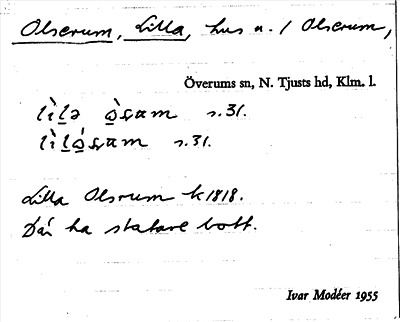 Olserum, Lilla, hus u. / Olserum,
Överums sn, N. Tjusts hd, Klm. l.
s. 31.
s. 31.
Lilla Olsrum k 1818.
Där ha statare bott.
Ivar Modéer 1955